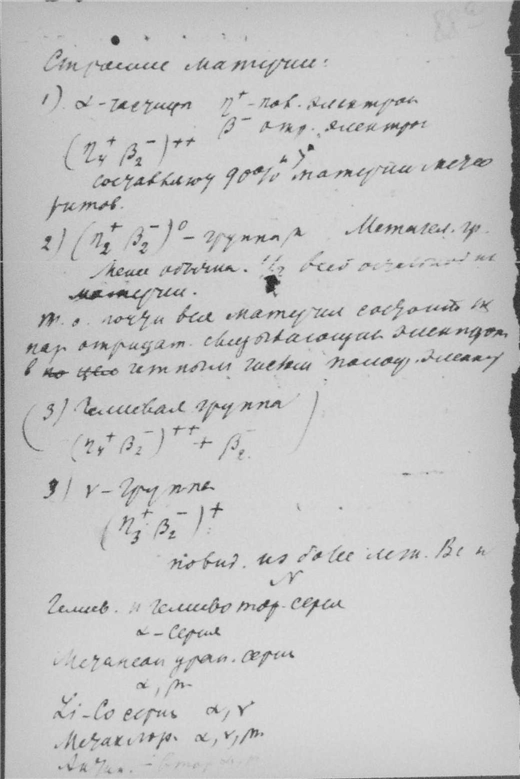 Строение материи:
1). α-частицы η⁺-пол. электрон
β⁻ отр. электрон
(η₄⁺ β₂⁻)⁺⁺
составляют 90% материи метео
ритов.
2) (η₂⁺ β₂⁻)⁰ – группа μ
менее обычна. из всей остальной
материи.
т. о. почти вся материя состоит из
пар отрицат. связывающих электронов
в четным числом полож. электр
(3) Гелиевая группа
(η₄⁺ β₂⁻)⁺⁺ + β₂⁻
3) ν-группа
(η₃⁺ β₂⁻)⁺
из более легк. Be и
N
Гелиев. и гелиево тор. серия
α-серия
серия
α, μ.
Li-Co серия α, ν
α, ν, μ.